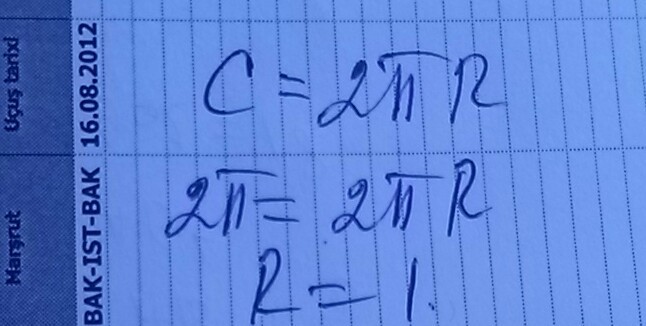 Uçuş tarixi
16.08.2012
Marşrut
BAK-IST-BAK
C = 2π R
2π = 2π R
R = 1.